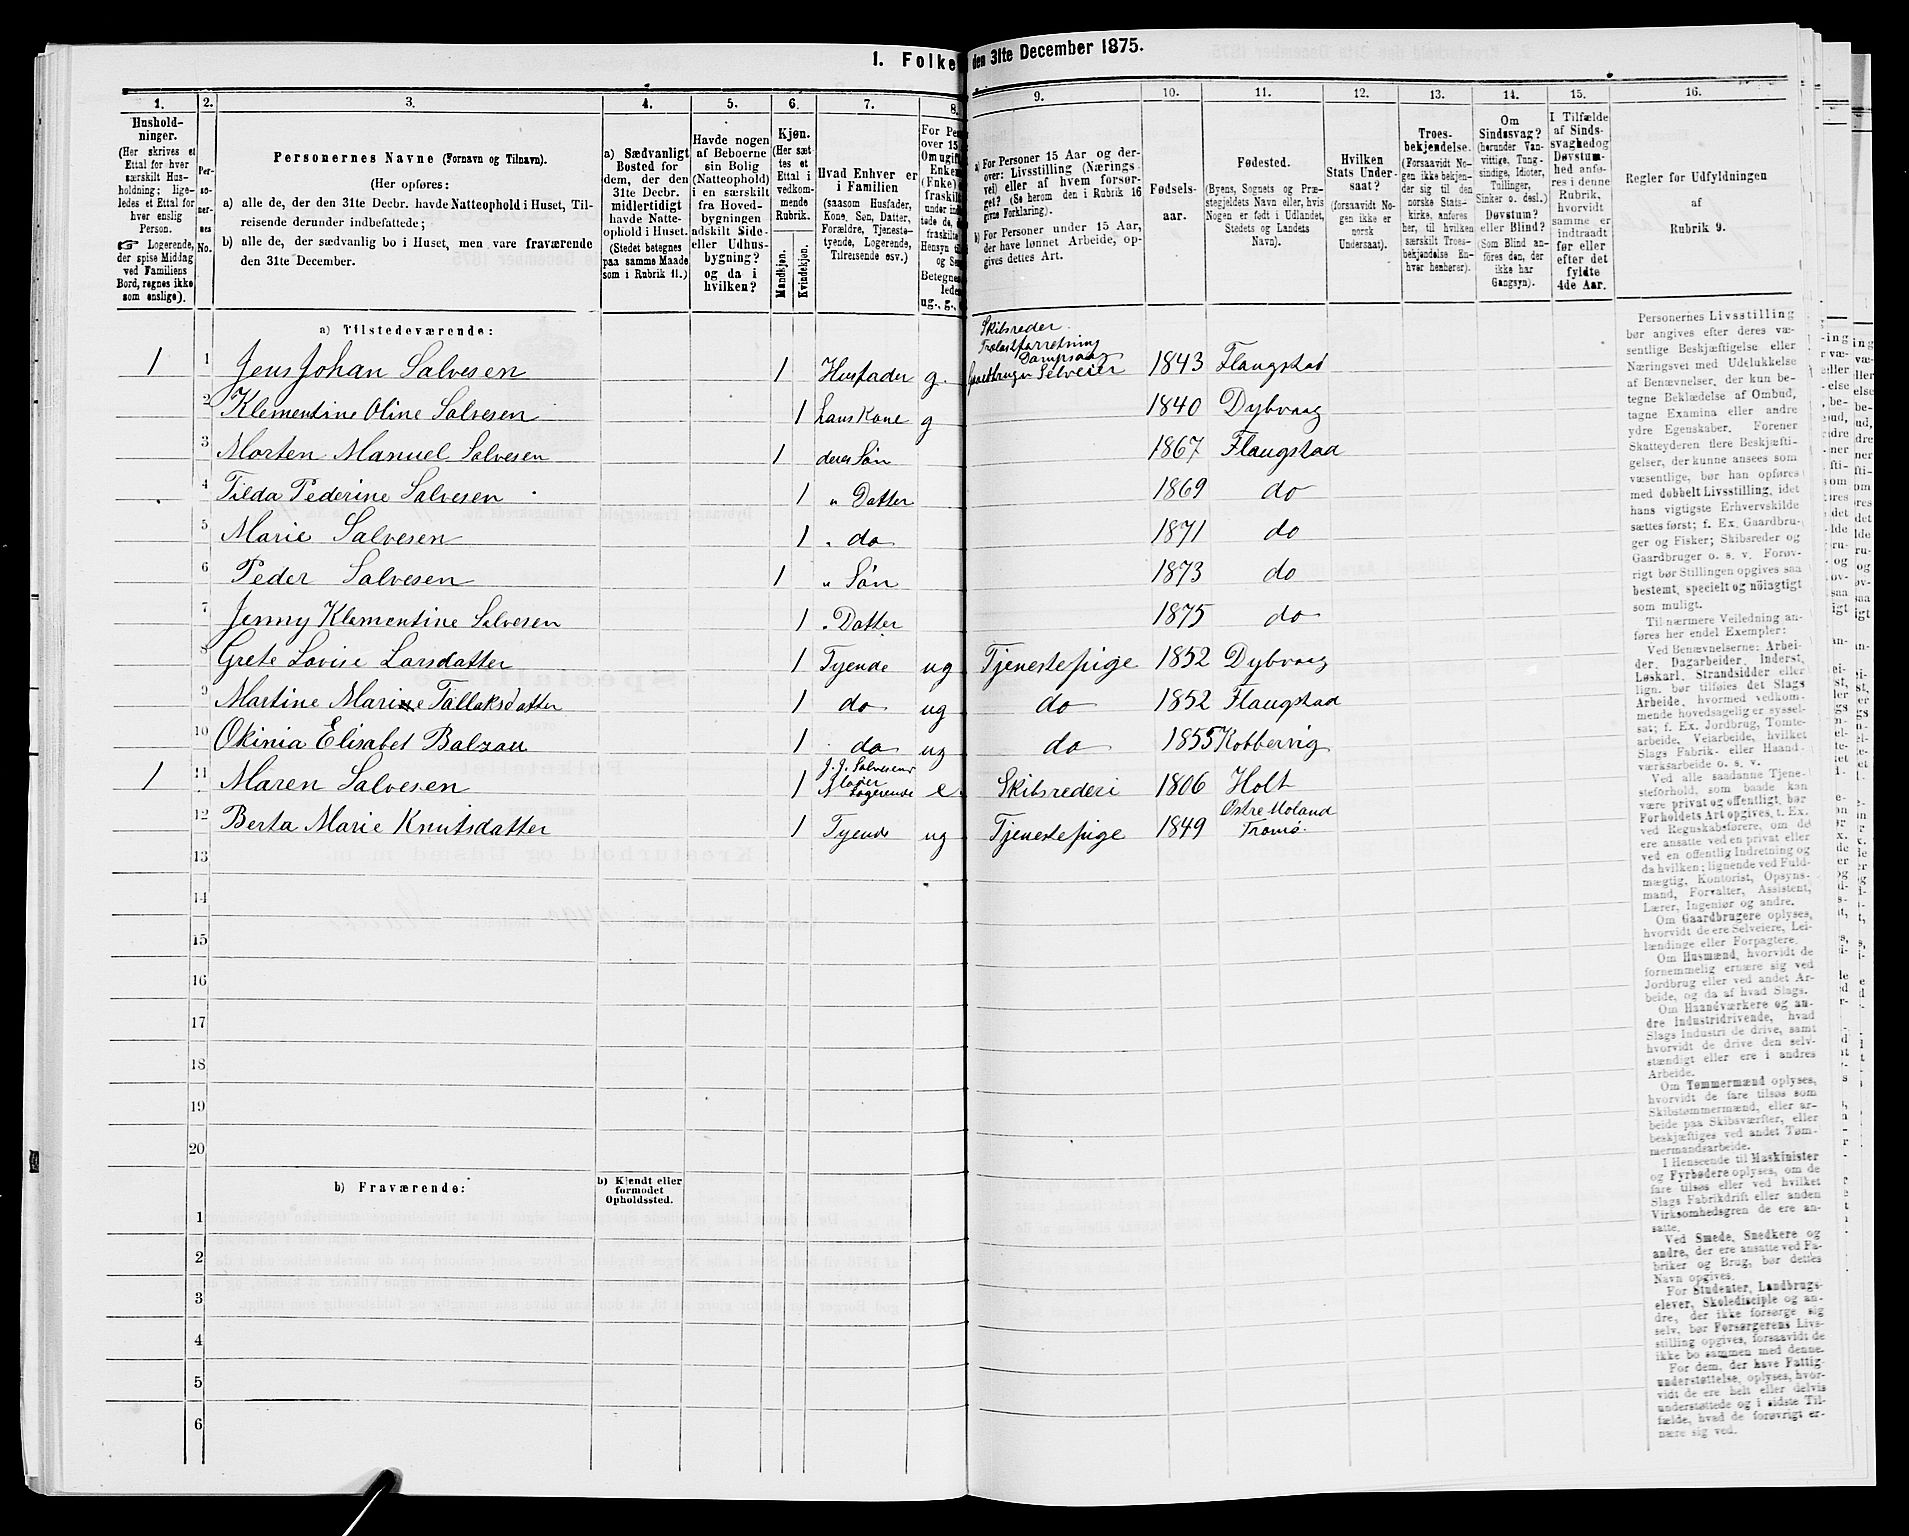 1. Folke den 31te December 1875.
1. 2. 3. 4. 5. 6. 7. 8. 9. 10. 11. 12. 13. 14. 15. 16.
Hushold-
ninger.
(Her skrives et
Ettal for hver
særskilt Hus-
holdning; lige-
ledes et Ettal for
hver enslig
Person.
☞ Logerende,
der spise Middag
ved Familiens
Bord, regnes ikke
som enslige).
Per-
so-
ner-
nes
No.
Personernes Navne (Fornavn og Tilnavn).
(Her opføres:
a) alle de, der den 31te Decbr. havde Natteophold i Huset, Til-
reisende derunder indbefattede;
b) alle de, der sædvanlig bo i Huset, men vare fraværende
den 31te December.
a) Sædvanligt
Bosted for
dem, der den
31te Decbr.
midlertidigt
havde Natte-
ophold i Huset.
(Stedet betegnes
paa samme Maade
som i Rubrik 11.)
Havde nogen
af Beboerne
sin Bolig
(Natteophold)
i en særskilt
fra Hoved-
bygningen
adskilt Side-
eller Udhus-
bygning?
og da i
hvilken?
Kjøn.
(Her sæt-
tes et
Ettal i
vedkom-
mende
Rubrik.
Mandkjøn.
Kvindekjøn.
Hvad Enhver er
i Familien
(saasom Husfader,
Kone, Søn, Datter,
Forældre, Tjeneste-
tyende, Logerende,
Tilreisende osv.)
For Pe
over 15
Om ugif
Enken
(Enke)
fraskilt
under in
tede, da
fraskilte
Hensyn ti
og Se
Betegne
lede
ug., g.,
a) For Personer 15 Aar og der-
over: Livsstilling (Nærings-
vei) eller af hvem forsør-
get? (Se herom den i Rubrik 16
givne Forklaring).
b) For Personer under 15 Aar,
der have lønnet Arbeide, op-
gives dettes Art.
Fødsels-
aar.
Fødested.
(Byens, Sognets og Præ-
stegjeldets Navn eller, hvis
Nogen er født i Udlandet,
Stedets og Landets
Navn).
Hvilken
Stats Under-
saat?
(forsaavidt No-
gen ikke er
norsk
Undersaat).
Troes-
bekjendelse.
(Forsaavidt No-
gen ikke bekjen-
der sig til den
norske Stats-
kirke, anføres
her, til hvilken
særskilt Troes-
bekjendelse En-
hver henhører).
Om
Sindssvag?
(herunder Van-
vittige, Tung-
sindige, Idioter,
Tullinger,
Sinker o. desl.)
Døvstum?
eller Blind?
(Som Blind an-
føres den, der
ikke har
Gangsyn).
I Tilfælde
af Sinds-
svaghed og
Døvstum-
hed anfø-
res i denne
Rubrik,
hvorvidt
samme er
indtraadt
før eller
efter det
fyldte
4de Aar.
Regler for Udfyldningen
af
Rubrik 9.
a) Tilstedeværende:
Skibsreder
Trælastforretning
Dampsag
1 1 Jens Johan Salvesen 1 Husfader g. Gaardbruger Selveier 1843 Flaugstad
2 Klementine Oline Salvesen 1 hans Kone g 1840 Dybvaag
3 Morten Manuel Salvesen 1 deres Søn 1867 Flaugstad
4 Tilda Pederine Salvesen 1 " Datter 1869 do
5 Marie Salvesen 1 " do 1871 do
6 Peder Salvesen 1 " Søn 1873 do
7 Jenny Klementine Salvesen 1 " Datter 1875 do
8 Grete Lovise Larsdatter 1 Tyende ug Tjenestepige 1852 Dybvaag
9 Martine Marine Tallaksdatter 1 do ug do 1852 Flaugstad
10 Okinia Elisabet Balzau 1 do ug do 1855 Kobbervig
J. J. Salvesens
Moder
1 11 Maren Salvesen 1 Logerende e. Skibsrederi 1806 Holt
Østre Moland
12 Berta Marie Knutsdatter 1 Tyende ug Tjenestepige 1849 Tromø.
13
14
15
16
17
18
19
20
b) Fraværende:
b) Kjendt eller
formodet
Opholdssted.
1
2
3
4
5
6
Personernes Livsstilling
bør angives efter deres væ-
sentlige Beskjæftigelse eller
Næringsvei med Udelukkelse
af Benævnelser, der kun be-
tegne Beklædelse af Ombud,
tagne Examina eller andre
ydre Egenskaber. Forener
Skatteyderen flere Beskjæfti-
gelser, der kunne ansees som
væsentlige, bør han opføres
med dobbelt Livsstilling, idet
hans vigtigste Erhvervskilde
sættes først; f. Ex. Gaardbru-
ger og Fisker; Skibsreder og
Gaardbruger o. s. v. Forøv-
rigt bør Stillingen opgives saa
bestemt, specielt og nøiagtigt
som muligt.
Til nærmere Veiledning an-
føres her endel Exempler:
Ved Benævnelserne: Arbei-
der, Dagarbeider, Inderst,
Løskarl, Strandsidder eller
lign. bør tilføies det Slags
Arbeide, hvormed vedkom-
mende hovedsagelig er syssel-
sat; f. Ex. Jordbrug, Tomte-
arbeide, Veiarbeide, hvilket
Slags Fabrik- eller Haand-
værksarbeide o. s. v.
Ved alle saadanne Tjene-
steforhold, som baade kan
være privat og offentligt, bør
Forholdets Art opgives, f. Ex.
ved Regnskabsførere, om de
ere ansatte ved en privat eller
ved en offentlig Indretning og
da hvilken; lignende ved Fuld-
mægtig, Kontorist, Opsyns-
mand, Forvalter, Assistent,
Lærer, Ingeniør og andre.
Om Gaardbrugere oplyses,
hvorvidt de ere Selveiere, Lei-
lændinge eller Forpagtere.
Om Husmænd, hvorvidt de
fornemmelig ernære sig ved
Jordbrug eller ved andet Ar-
beide, og da af hvad Slags.
Om Haandværkere og an-
dre Industridrivende, hvad
Slags Industri de drive, samt
hvorvidt de drive den selv-
stændigt eller ere i andres
Arbeide.
Om Tømmermænd oplyses,
hvorvidt de fare tilsøs som
Skibstømmermænd, eller ar-
beide paa Skibsværfter, eller
beskjæftiges ved andet Tøm-
mermandsarbeide.
I Henseende til Maskinister
og Fyrbødere oplyses, om de
fare tilsøs eller ved hvilket
Slags Fabrikdrift eller anden
Virksomhedsgren de ere an-
satte.
Ved Smede, Snedkere og
andre, der ere ansatte ved Fa-
briker og Brug, bør dettes
Navn opgives.
For Studenter, Landbrugs-
elever, Skoledisciple og an-
dre, der ikke forsørge sig
selv, bør Forsørgerens Livs-
stilling opgives, forsaavidt de
ikke bo sammen med denne.
For dem, der have Fattig-
understøttelse, oplyses, hvor-
vidt de ere helt eller delvis
understøttede og i sidste Til-
fælde, hvad de forøvrigt er-
nære sig ved.